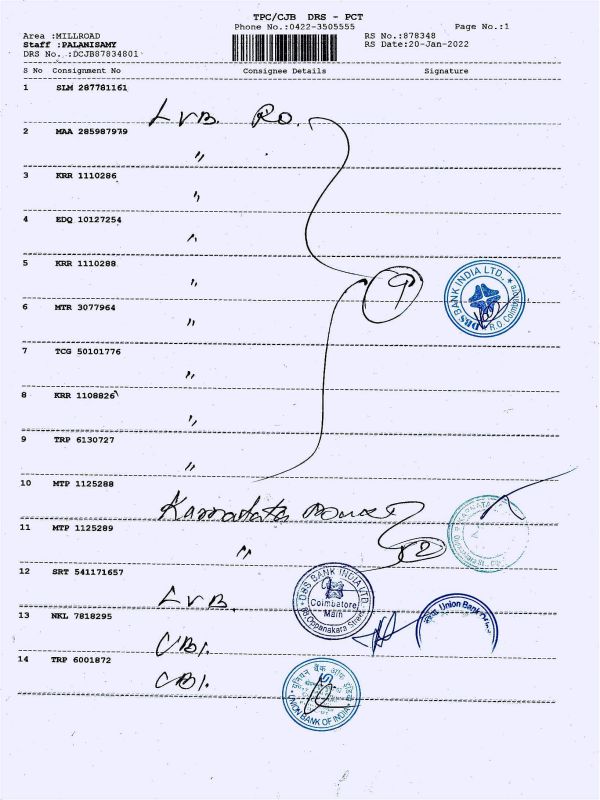 TPC/CJB DRS - PCT
Phone No.:0422-3505555
Page No.:1
Area :MILLROAD
RS No.:878348
Staff :PALANISAMY
RS Date:20-Jan-2022
DRS No. :DCJB87834801
S No Consignment No Consignee Details Signature
1 SLM 287781161
LVB. RO.
2 MAA 285987979
"
3 KRR 1110286
"
4 EDQ 10127254
"
5 KRR 1110288
"
DBS BANK INDIA LTD., R.O. Coimbatore
6 MTR 3077964
"
7 TCG 50101776
"
8 KRR 1108826
"
9 TRP 6130727
"
10 MTP 1125288
Karnataka
11 MTP 1125289
"
2
12 SRT 541171657
DBS BANK INDIA LTD.
Coimbatore
Main
Oppanakara Street
LVB.
13 NKL 7818295
Union Bank
UBI.
14 TRP 6001872
UBI.
यूनियन बैंक ऑफ इंडिया
UNION BANK OF INDIA